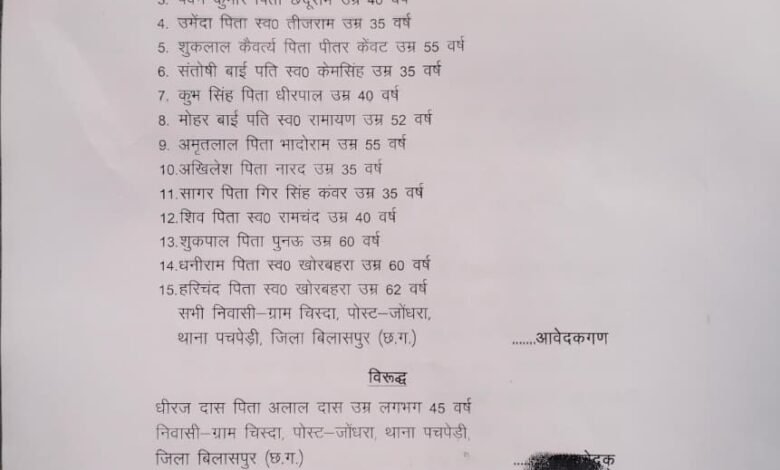 4. उमेंदा पिता स्व0 तीजराम उम्र 35 वर्ष
5. शुकलाल कैवर्त्य पिता पीतर केंवट उम्र 55 वर्ष
6. संतोषी बाई पति स्व0 केमसिंह उम्र 35 वर्ष
7. कुम सिंह पिता धीरपाल उम्र 40 वर्ष
8. मोहर बाई पति स्व0 रामायण उम्र 52 वर्ष
9. अमृतलाल पिता भादोराम उम्र 55 वर्ष
10.अखिलेश पिता नारद उम्र 35 वर्ष
11.सागर पिता गिर सिंह कंवर उम्र 35 वर्ष
12.शिव पिता स्व0 रामचंद उम्र 40 वर्ष
13.शुकपाल पिता पुनऊ उम्र 60 वर्ष
14.धनीराम पिता स्व0 खोरबहरा उम्र 60 वर्ष
15.हरिचंद पिता स्व0 खोरबहरा उम्र 62 वर्ष
सभी निवासी–ग्राम चिस्दा, पोस्ट–जोंधरा,
थाना पचपेड़ी, जिला बिलासपुर (छ.ग.) .......आवेदकगण
विरूद्ध
धीरज दास पिता अलाल दास उम्र लगभग 45 वर्ष
निवासी–ग्राम चिस्दा, पोस्ट–जोंधरा, थाना पचपेड़ी,
जिला बिलासपुर (छ.ग.)